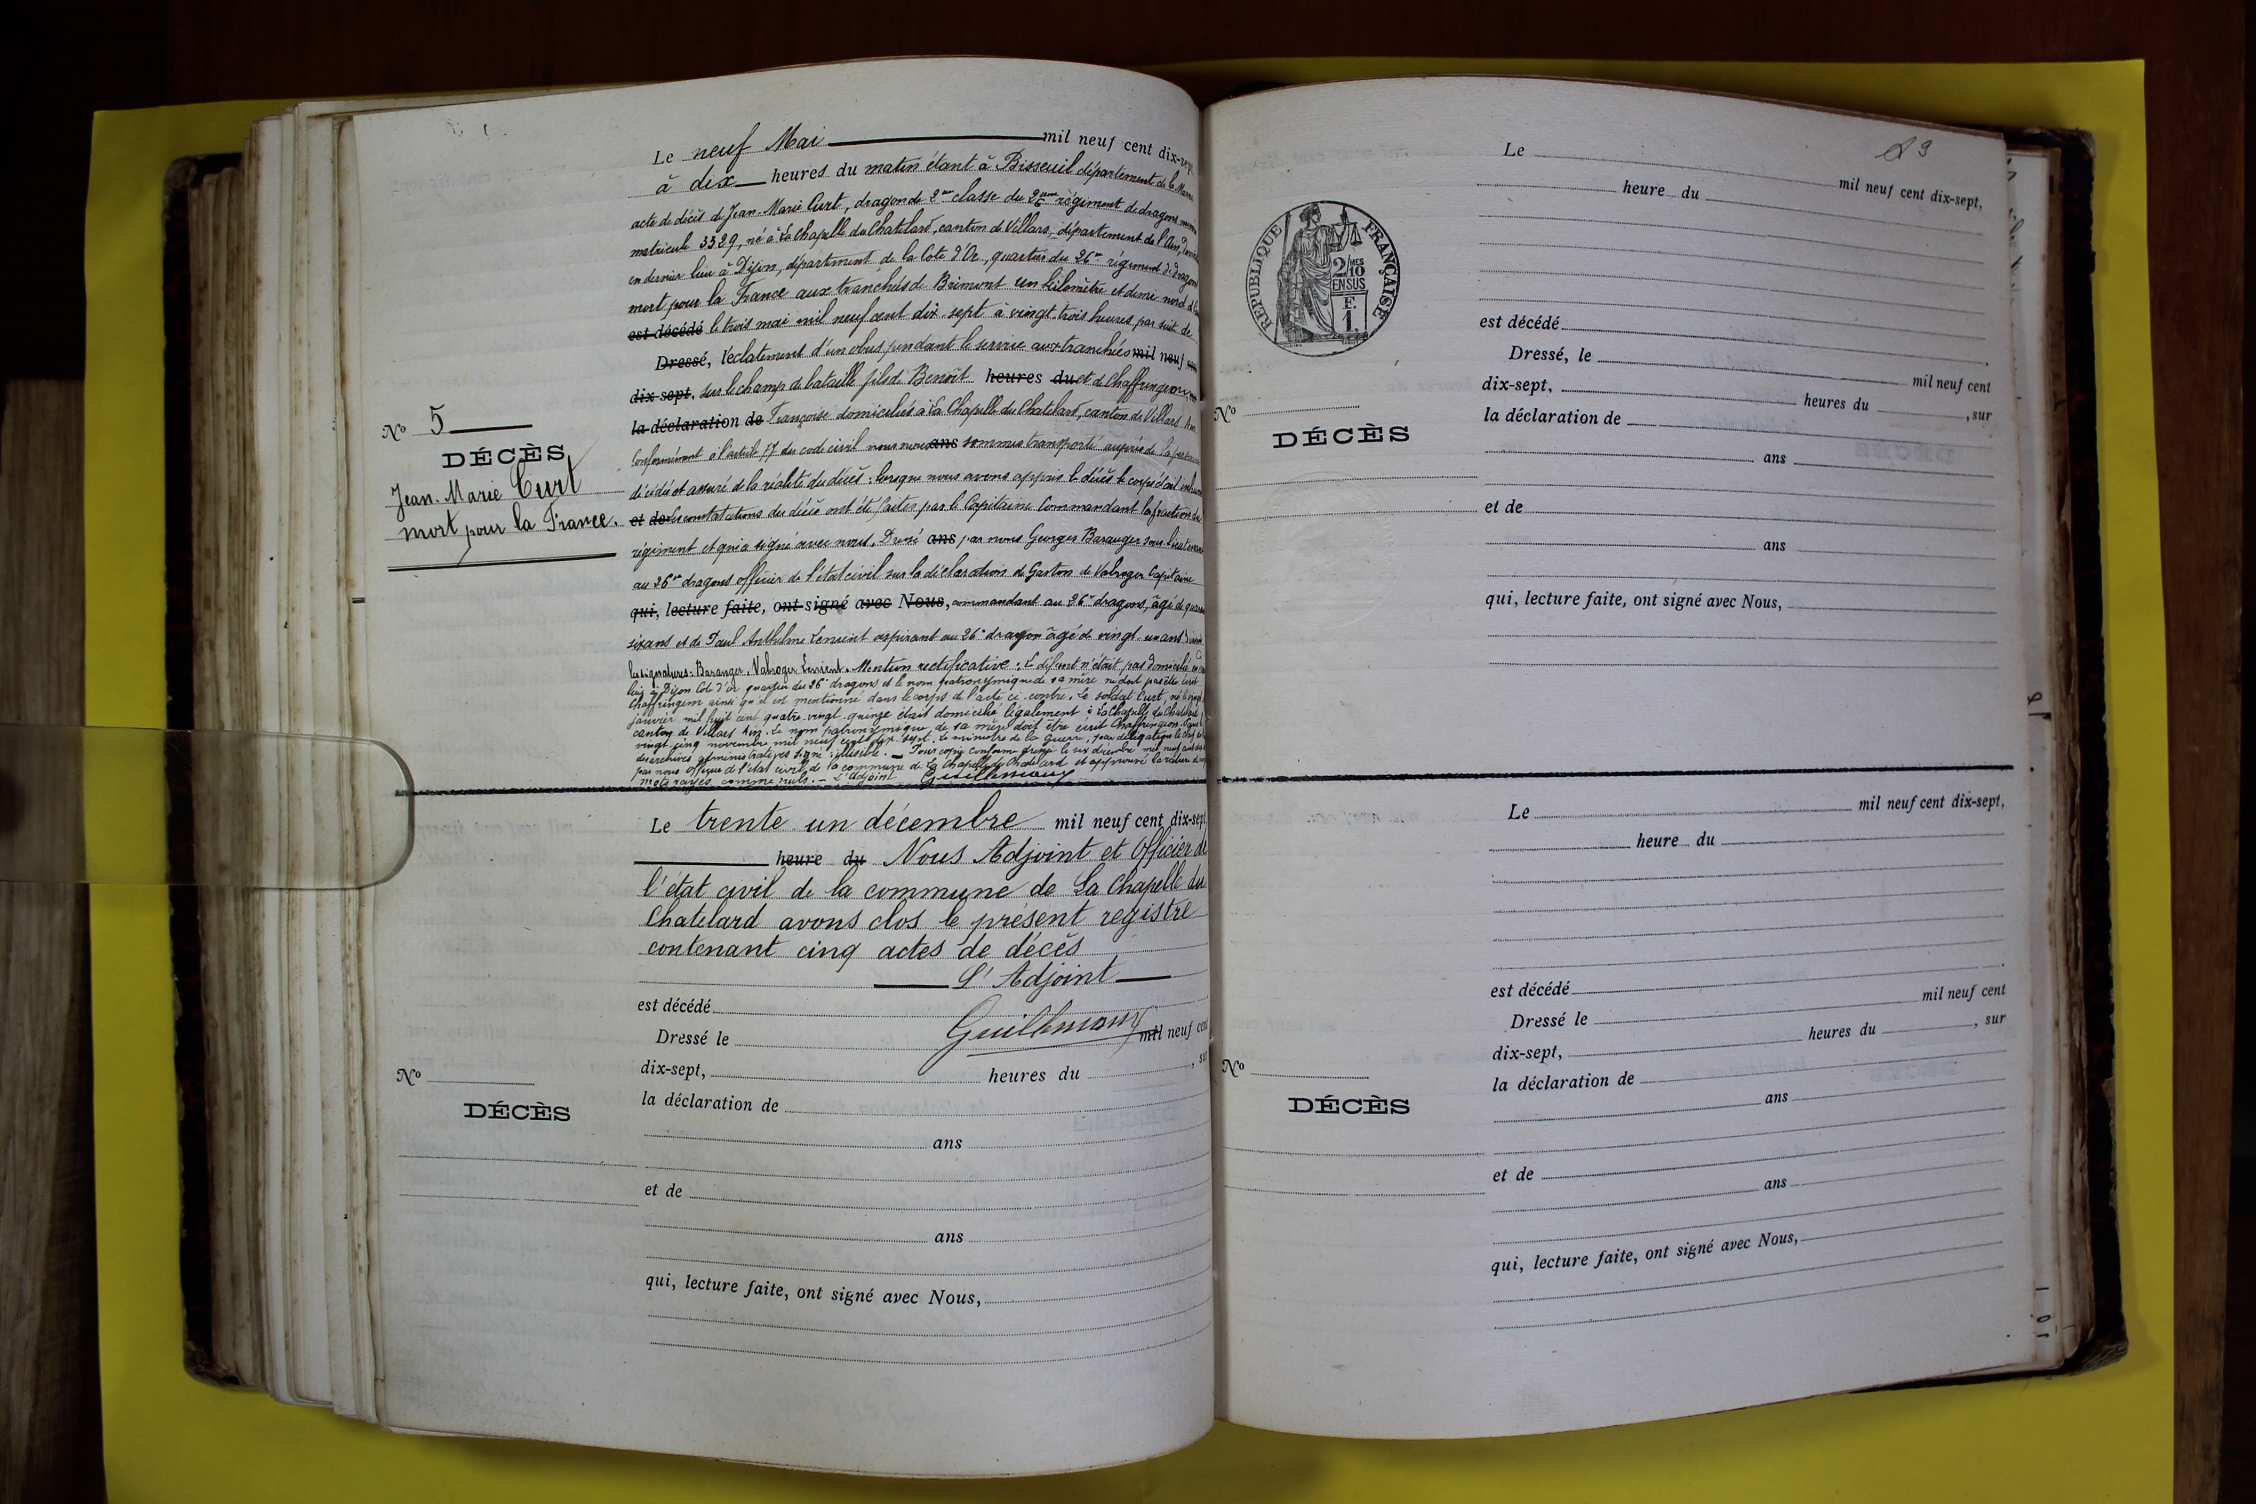 Le neuf Mai mil neuf cent dix-sept
à dix heures du matin étant à Bisseuil département de la Marne
acte de décès de Jean-Marie Curt, dragon de 2me classe du régiment de dragons
matricule 3329, né à La Chapelle du Chatelard, canton de Villars, département de l'Ain,
en dernier lieu à Dijon, département de la Cote d'Or, quartier du 26me régiment de dragons
mort pour la France aux tranchées de Brimont un kilomètre et demi nord
est décédé le trois mai mil neuf cent dix-sept à vingt-trois heures par suite de
Dressé, l'éclatement d'un obus pendant le service aux tranchées mil neuf
dix-sept, sur le champ de bataille fils de Benoît heures du et de Chaffringeon
la déclaration de Françoise domiciliés à La Chapelle du Chatelard, canton de Villars Ain
Conformément à l'article 77 du code civil nous ans sommes transporté auprès de la personne
décédée et assuré de la réalité du décès ; lorsque nous avons appris le décès le corps était
et de Les constatations du décès ont été faites par le Capitaine Commandant la fraction du
régiment et qui a signé avec nous. ans par nous Georges Baranger sous-lieutenant
au 26me dragons officier de l'état civil sur la déclaration de Gaston de Valroger Capitaine
qui, lecture faite, ont signé avec Nous, commandant au 26me dragons, âgé de quarante
six ans et de Paul Anthelme aspirant au 26e dragon âgé de vingt-un ans
les signatures : Baranger, Valroger, Mention rectificative : Le défunt n'était pas domicilié
à Dijon Cote d'or quartier du 26e dragons et le nom patronymique de sa mère ne doit pas être écrit
Chaffringeon ainsi qu'il est mentionné dans le corps de l'acte ci-contre. Le soldat Curt, né
janvier mil huit cent quatre-vingt-quinze était domicilié légalement à La Chapelle du Chatelard
canton de Villars Ain. Le nom patronymique de sa mère doit être écrit
vingt-cinq novembre mil neuf cent dix-sept. Le ministre de la Guerre, par délégation le chef
des archives administratives signé : illisible. — Pour copie conforme le six décembre mil neuf cent
par nous officier de l'état civil de la commune de La Chapelle du Chatelard et approuvé
mots rayés comme nuls. — L'adjoint Guillemaux
No 5
DÉCÈS
Jean-Marie Curt
mort pour la France.
Le trente-un décembre mil neuf cent dix-sept
heure du Nous Adjoint et Officier de
l'état civil de la commune de La Chapelle du
Chatelard avons clos le présent registre
contenant cinq actes de décès
L'Adjoint
est décédé
Guillemaux
Dressé le mil neuf cent
dix-sept, heures du , sur
la déclaration de
No
DÉCÈS
ans
et de
ans
qui, lecture faite, ont signé avec Nous,
Le mil neuf cent dix-sept,
heure du
RÉPUBLIQUE FRANÇAISE
2/10 MES
EN SUS
est décédé
Dressé, le mil neuf cent
dix-sept, heures du , sur
la déclaration de
No
DÉCÈS
ans
et de
ans
qui, lecture faite, ont signé avec Nous,
Le mil neuf cent dix-sept,
heure du
est décédé
Dressé le mil neuf cent
dix-sept, heures du , sur
la déclaration de
No
DÉCÈS
ans
et de
ans
qui, lecture faite, ont signé avec Nous,